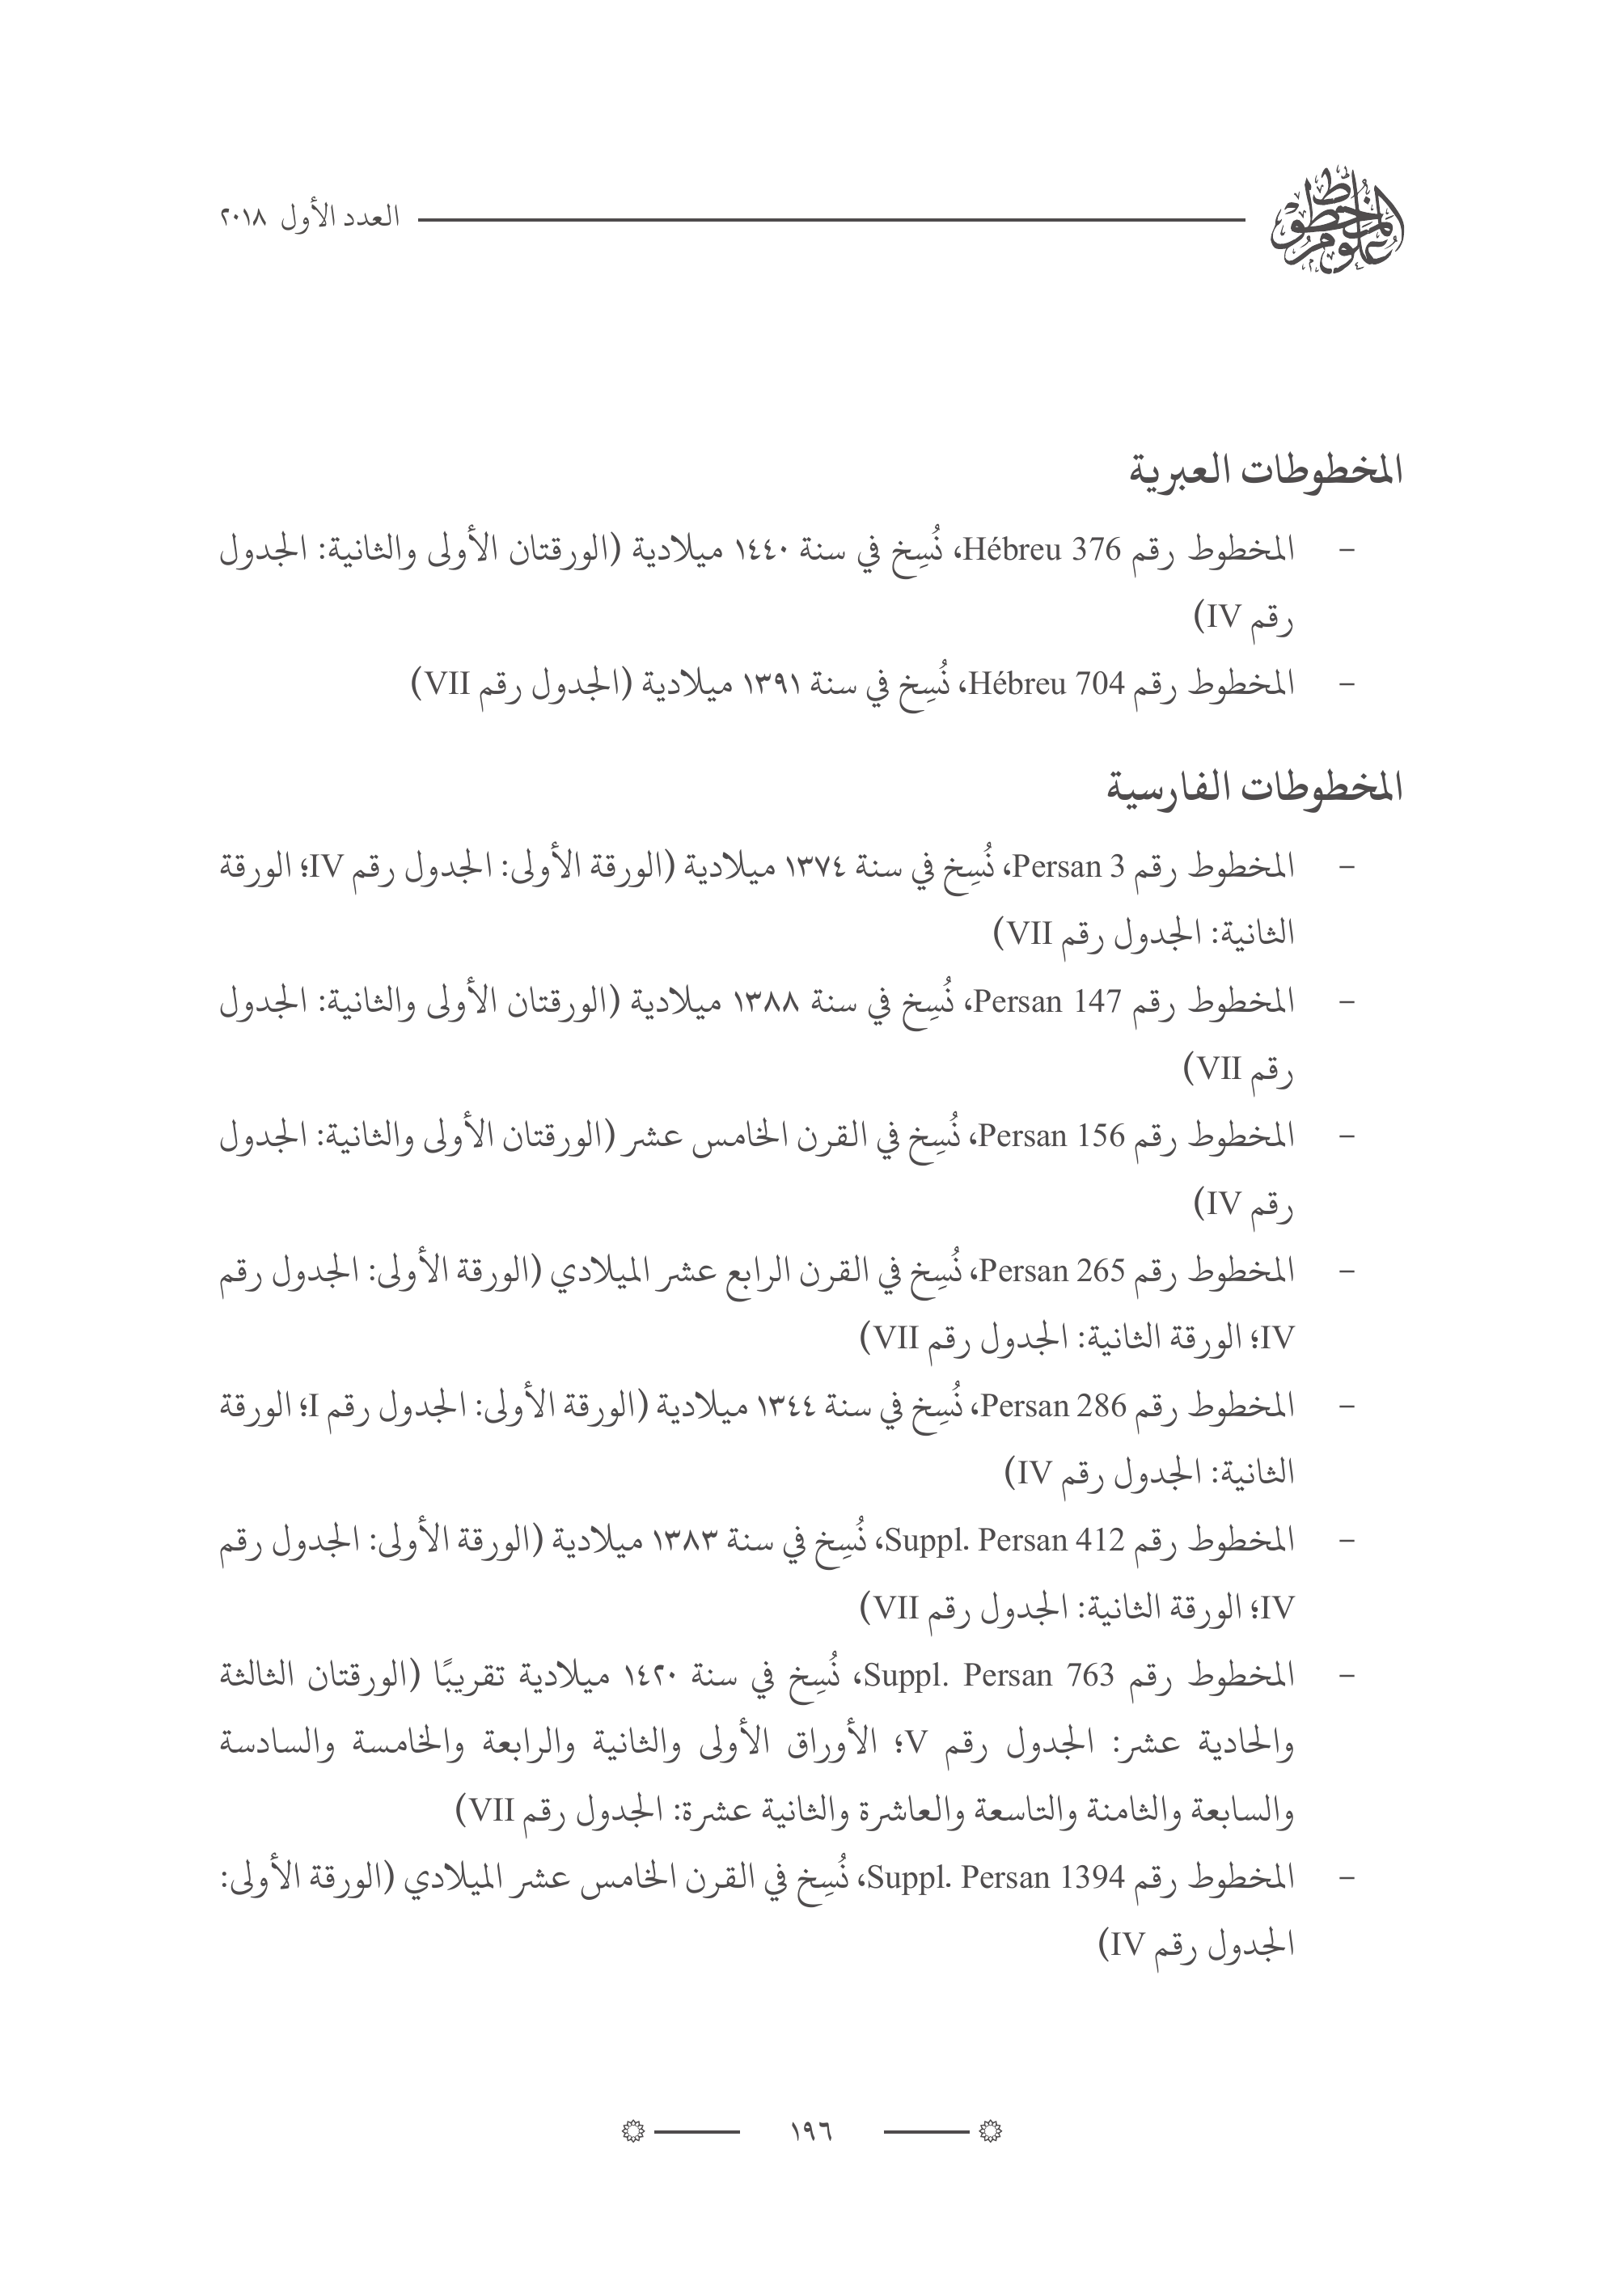 علوم المخطوط
العدد الأول ٢٠١٨
المخطوطات العبرية
– المخطوط رقم Hébreu 376، نُسِخ في سنة ١٤٤٠ ميلادية (الورقتان الأولى والثانية: الجدول
رقم IV)
– المخطوط رقم Hébreu 704، نُسِخ في سنة ١٣٩١ ميلادية (الجدول رقم VII)
المخطوطات الفارسية
– المخطوط رقم Persan 3، نُسِخ في سنة ١٣٧٤ ميلادية (الورقة الأولى: الجدول رقم IV؛ الورقة
الثانية: الجدول رقم VII)
– المخطوط رقم Persan 147، نُسِخ في سنة ١٣٨٨ ميلادية (الورقتان الأولى والثانية: الجدول
رقم VII)
– المخطوط رقم Persan 156، نُسِخ في القرن الخامس عشر (الورقتان الأولى والثانية: الجدول
رقم IV)
– المخطوط رقم Persan 265، نُسِخ في القرن الرابع عشر الميلادي (الورقة الأولى: الجدول رقم
IV؛ الورقة الثانية: الجدول رقم VII)
– المخطوط رقم Persan 286، نُسِخ في سنة ١٣٤٤ ميلادية (الورقة الأولى: الجدول رقم I؛ الورقة
الثانية: الجدول رقم IV)
– المخطوط رقم Suppl. Persan 412، نُسِخ في سنة ١٣٨٣ ميلادية (الورقة الأولى: الجدول رقم
IV؛ الورقة الثانية: الجدول رقم VII)
– المخطوط رقم Suppl. Persan 763، نُسِخ في سنة ١٤٢٠ ميلادية تقريبًا (الورقتان الثالثة
والحادية عشر: الجدول رقم V؛ الأوراق الأولى والثانية والرابعة والخامسة والسادسة
والسابعة والثامنة والتاسعة والعاشرة والثانية عشرة: الجدول رقم VII)
– المخطوط رقم Suppl. Persan 1394، نُسِخ في القرن الخامس عشر الميلادي (الورقة الأولى:
الجدول رقم IV)
١٩٦